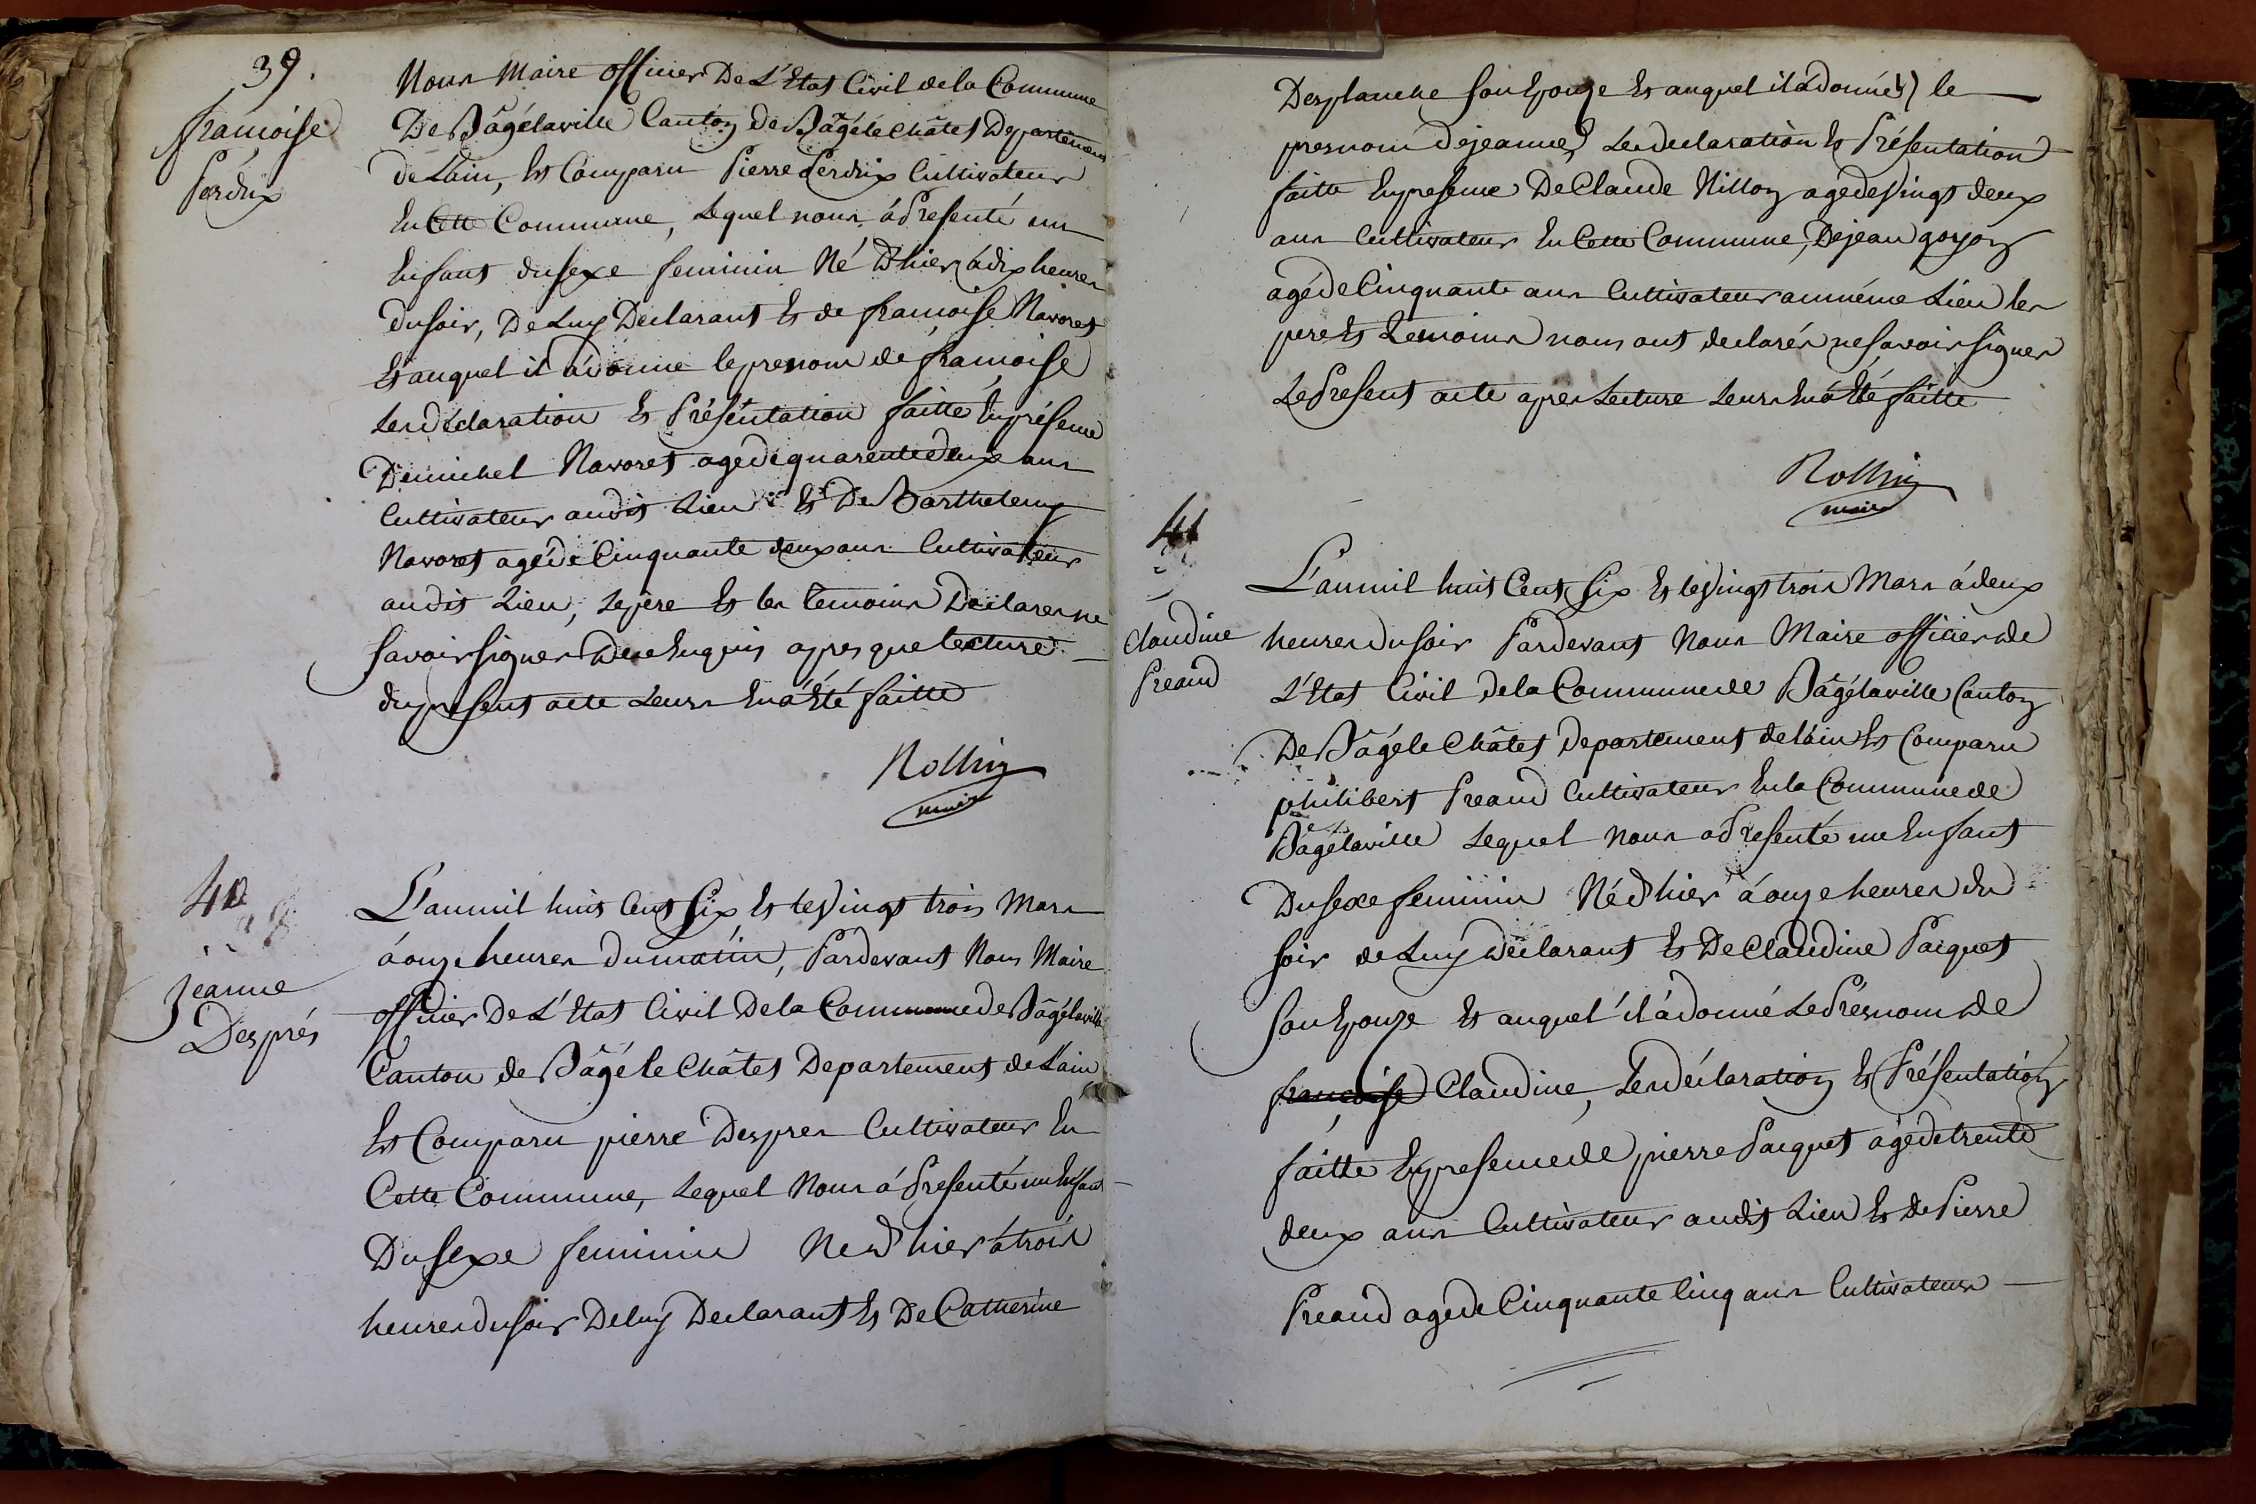 39.
françoise
Perdrix
Nous Maire officier De L'Etat Civil de la Commune
De Bâgélaville Canton de Bâgé le Châtel Departement
de Lain, Est Comparu Pierre Perdrix Cultivateur
En Cette Commune, Lequel nous à Presenté un
Enfant du sexe feminin Né D'hier à dix heures
du soir, De Luy Declarant Et de françoise Navoret
Et auquel il à donné le prenom de françoise
Les déclaration Et Présentation faitte En présence
De michel Navoret agé de quarente deux ans
Cultivateur audit Lieu Et De Barthelemy
Navoret agé de Cinquante deux ans Cultivateur
audit Lieu, Le père Et les temoins Declares ne
savoir signer De ce Enquis apres que lecture
du present acte Leurs En à Eté faitte
Rollin
maire
40
Jeanne
Després
L'an mil huit Cent Six Et le Vingt trois Mars
à onze heures du matin, Pardevant Nous Maire
officier De L'Etat Civil De la Commune de Bâgélaville
Canton de Bâgé le Châtel Departement de Lain
Est Comparu pierre Despres Cultivateur En
Cette Commune, Lequel Nous à Presenté un Enfant
Du sexe feminin Né d'hier à trois
heures du soir De luy Declarant Et De Catherine
Desplanche son Epouze Et auquel il à donné le
presnom de jeanne, Les declaration Et Présentation
faitte En presence De Claude Nillon age de Vingt deux
ans Cultivateur En Cette Commune, De jean goyon
agé de Cinquante ans Cultivateur au même Lieu les
pere Et Temoins nous ont declarés ne savoir signer
Le Present acte apres Lecture Leurs En à Eté faitte
Rollin
maire
41
Claudine
Preaud
L'an mil huit Cent Six Et le Vingt trois Mars à deux
heures du soir Pardevant Nous Maire officier de
L'Etat Civil de la Commune de Bâgélaville Canton
De Bâgé le Châtel Departement de l'ain Est Comparu
philibert Preaud Cultivateur En la Commune de
Bâgélaville Lequel Nous a Presenté un Enfant
Du sexe feminin Né d'hier à onze heures du
soir de Luy déclarant Et De Claudine Paquet
son Epouze Et auquel il à donné Le Présnom de
françoise Claudine, Les déclaration Et Présentation
faitte En presence de pierre Paquet agé de trente
deux ans Cultivateur audit Lieu Et De Pierre
Preaud agé de Cinquante Cinq ans Cultivateurs